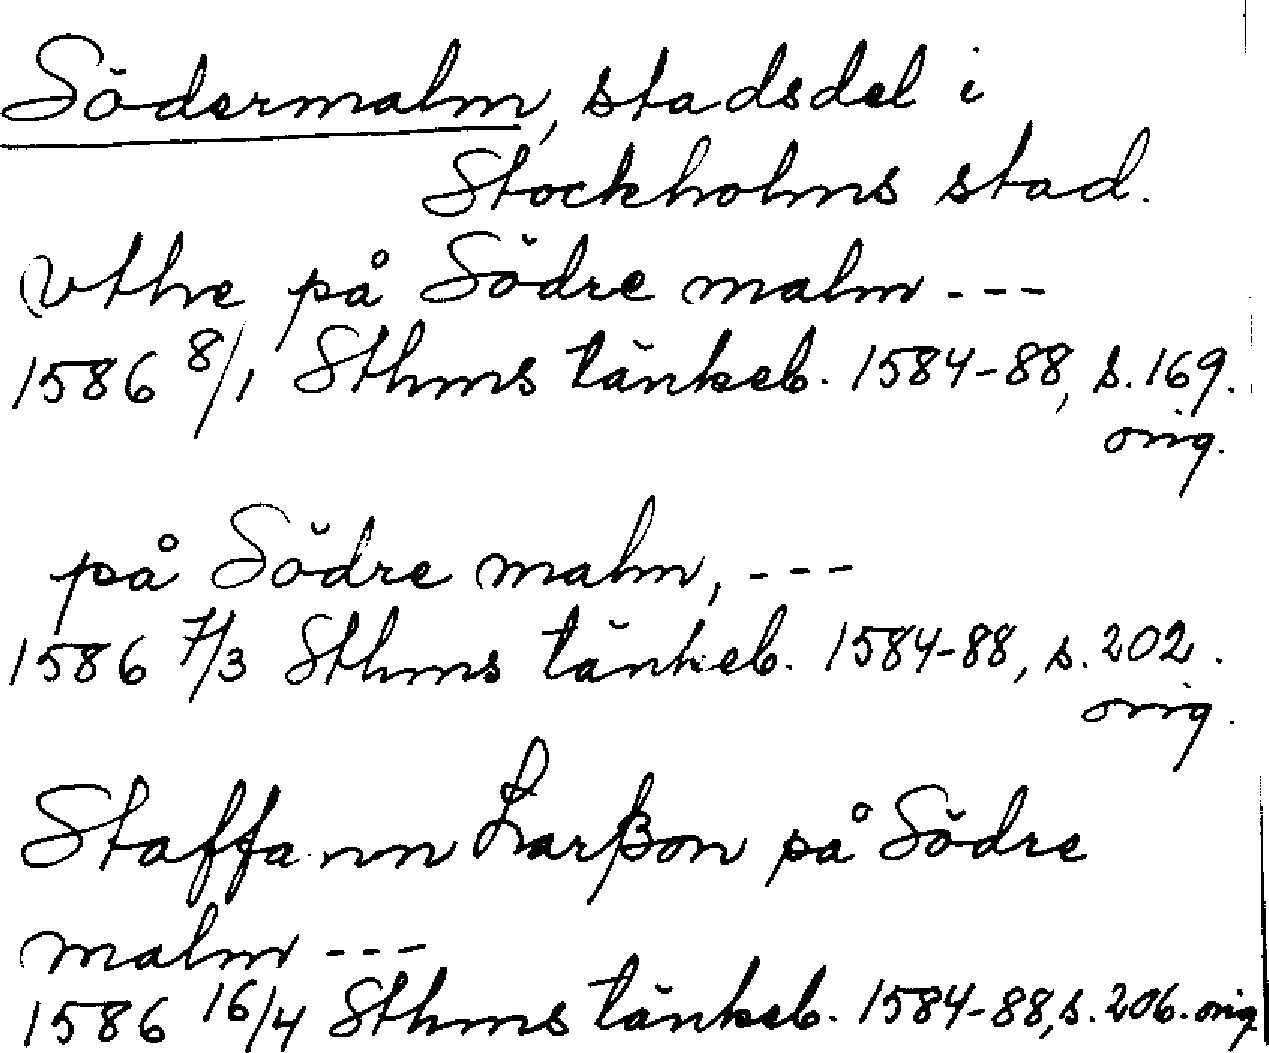 Södermalm, stadsdel i
Stockholms stad.
vthe på Södre malm ---
1586 8/1 Sthms tänkeb. 1584-88, s. 169.
orig.
på Södre malm, ---
1586 7/3 Sthms tänkeb. 1584-88, s. 202.
orig.
Staffann Larßon på Södre
malm ---
1586 16/4 Sthms tänkeb. 1584-88, s. 206. orig